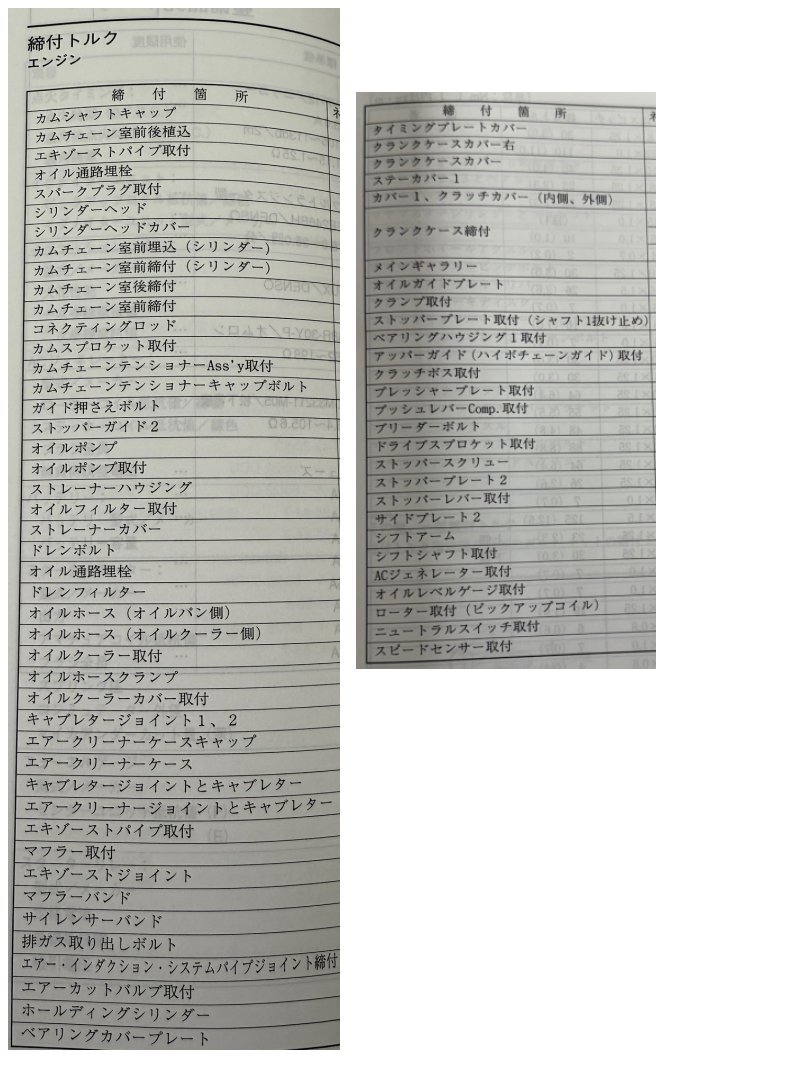 締付トルク
エンジン
締付箇所
カムシャフトキャップ
カムチェーン室前後植込
エキゾーストパイプ取付
オイル通路埋栓
スパークプラグ取付
シリンダーヘッド
シリンダーヘッドカバー
カムチェーン室前埋込（シリンダー）
カムチェーン室前締付（シリンダー）
カムチェーン室後締付
カムチェーン室前締付
コネクティングロッド
カムスプロケット取付
カムチェーンテンショナーAss'y取付
カムチェーンテンショナーキャップボルト
ガイド押さえボルト
ストッパーガイド２
オイルポンプ
オイルポンプ取付
ストレーナーハウジング
オイルフィルター取付
ストレーナーカバー
ドレンボルト
オイル通路埋栓
ドレンフィルター
オイルホース（オイルパン側）
オイルホース（オイルクーラー側）
オイルクーラー取付
オイルホースクランプ
オイルクーラーカバー取付
キャブレタージョイント１、２
エアークリーナーケースキャップ
エアークリーナーケース
キャブレタージョイントとキャブレター
エアークリーナージョイントとキャブレター
エキゾーストパイプ取付
マフラー取付
エキゾーストジョイント
マフラーバンド
サイレンサーバンド
排ガス取り出しボルト
エアー・インダクション・システムパイプジョイント締付
エアーカットバルブ取付
ホールディングシリンダー
ベアリングカバープレート
締付箇所
タイミングプレートカバー
クランクケースカバー右
クランクケースカバー
ステーカバー１
カバー１、クラッチカバー（内側、外側）
クランクケース締付
メインギャラリー
オイルガイドプレート
クランプ取付
ストッパープレート取付（シャフト1抜け止め）
ベアリングハウジング１取付
アッパーガイド（ハイボチェーンガイド）取付
クラッチボス取付
プレッシャープレート取付
プッシュレバーComp.取付
ブリーダーボルト
ドライブスプロケット取付
ストッパースクリュー
ストッパープレート２
ストッパーレバー取付
サイドプレート２
シフトアーム
シフトシャフト取付
ACジェネレーター取付
オイルレベルゲージ取付
ローター取付（ピックアップコイル）
ニュートラルスイッチ取付
スピードセンサー取付